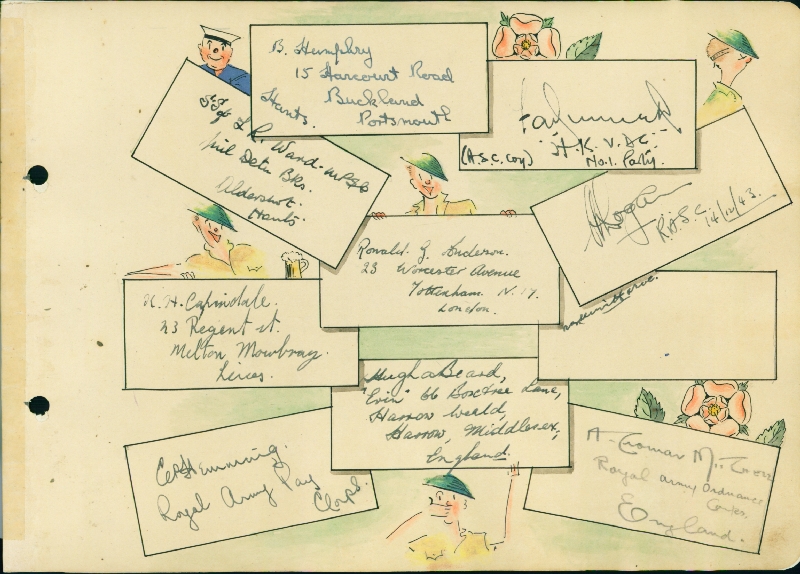 B. Humphry
15 Harcourt Road
Buckland
Portsmouth
Hants.
H.K.V.D.C.
(A.S.C. Coy) No.1. Party.
L.R. Ward
Mil Detn Bks.
Aldershot.
Hants
R.A.S.C. 14/12/43.
Ronald. G. Anderson.
23 Worcester Avenue
Tottenham. N.17.
London.
23 Regent St.
Melton Mowbray.
Leics.
Hugh A Beard,
"Evin" 66 Boxtree Lane,
Harrow Weald,
Harrow, Middlesex,
England.
Hemming.
Royal Army Pay
Corps.
A. Thomas
Royal Army Ordnance
Corps.
England.